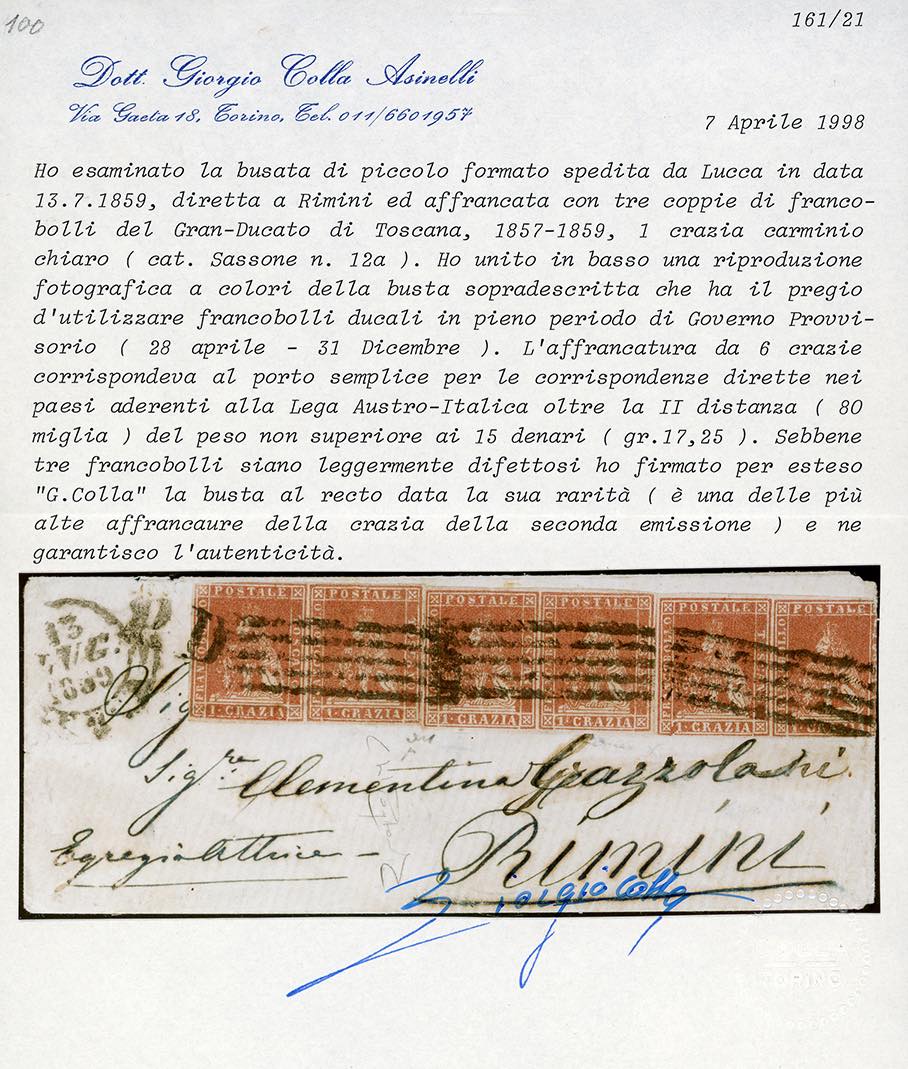 100
161/21
Dott. Giorgio Colla Asinelli
Via Gaeta 18, Torino, Tel. 011/6601957
7 Aprile 1998
Ho esaminato la busata di piccolo formato spedita da Lucca in data
13.7.1859, diretta a Rimini ed affrancata con tre coppie di franco-
bolli del Gran-Ducato di Toscana, 1857-1859, 1 crazia carminio
chiaro ( cat. Sassone n. 12a ). Ho unito in basso una riproduzione
fotografica a colori della busta sopradescritta che ha il pregio
d'utilizzare francobolli ducali in pieno periodo di Governo Provvi-
sorio ( 28 aprile - 31 Dicembre ). L'affrancatura da 6 crazie
corrispondeva al porto semplice per le corrispondenze dirette nei
paesi aderenti alla Lega Austro-Italica oltre la II distanza ( 80
miglia ) del peso non superiore ai 15 denari ( gr.17,25 ). Sebbene
tre francobolli siano leggermente difettosi ho firmato per esteso
"G.Colla" la busta al recto data la sua rarità ( è una delle più
alte affrancaure della crazia della seconda emissione ) e ne
garantisco l'autenticità.
POSTALE POSTALE POSTALE POSTALE POSTALE POSTALE
13
LUG.
1859
PD
1·CRAZIA 1·CRAZIA 1·CRAZIA 1·CRAZIA 1·CRAZIA 1·CRAZIA
Sig.re Clementina
Rimini
Egregia Attrice -
Giorgio Colla
TORINO